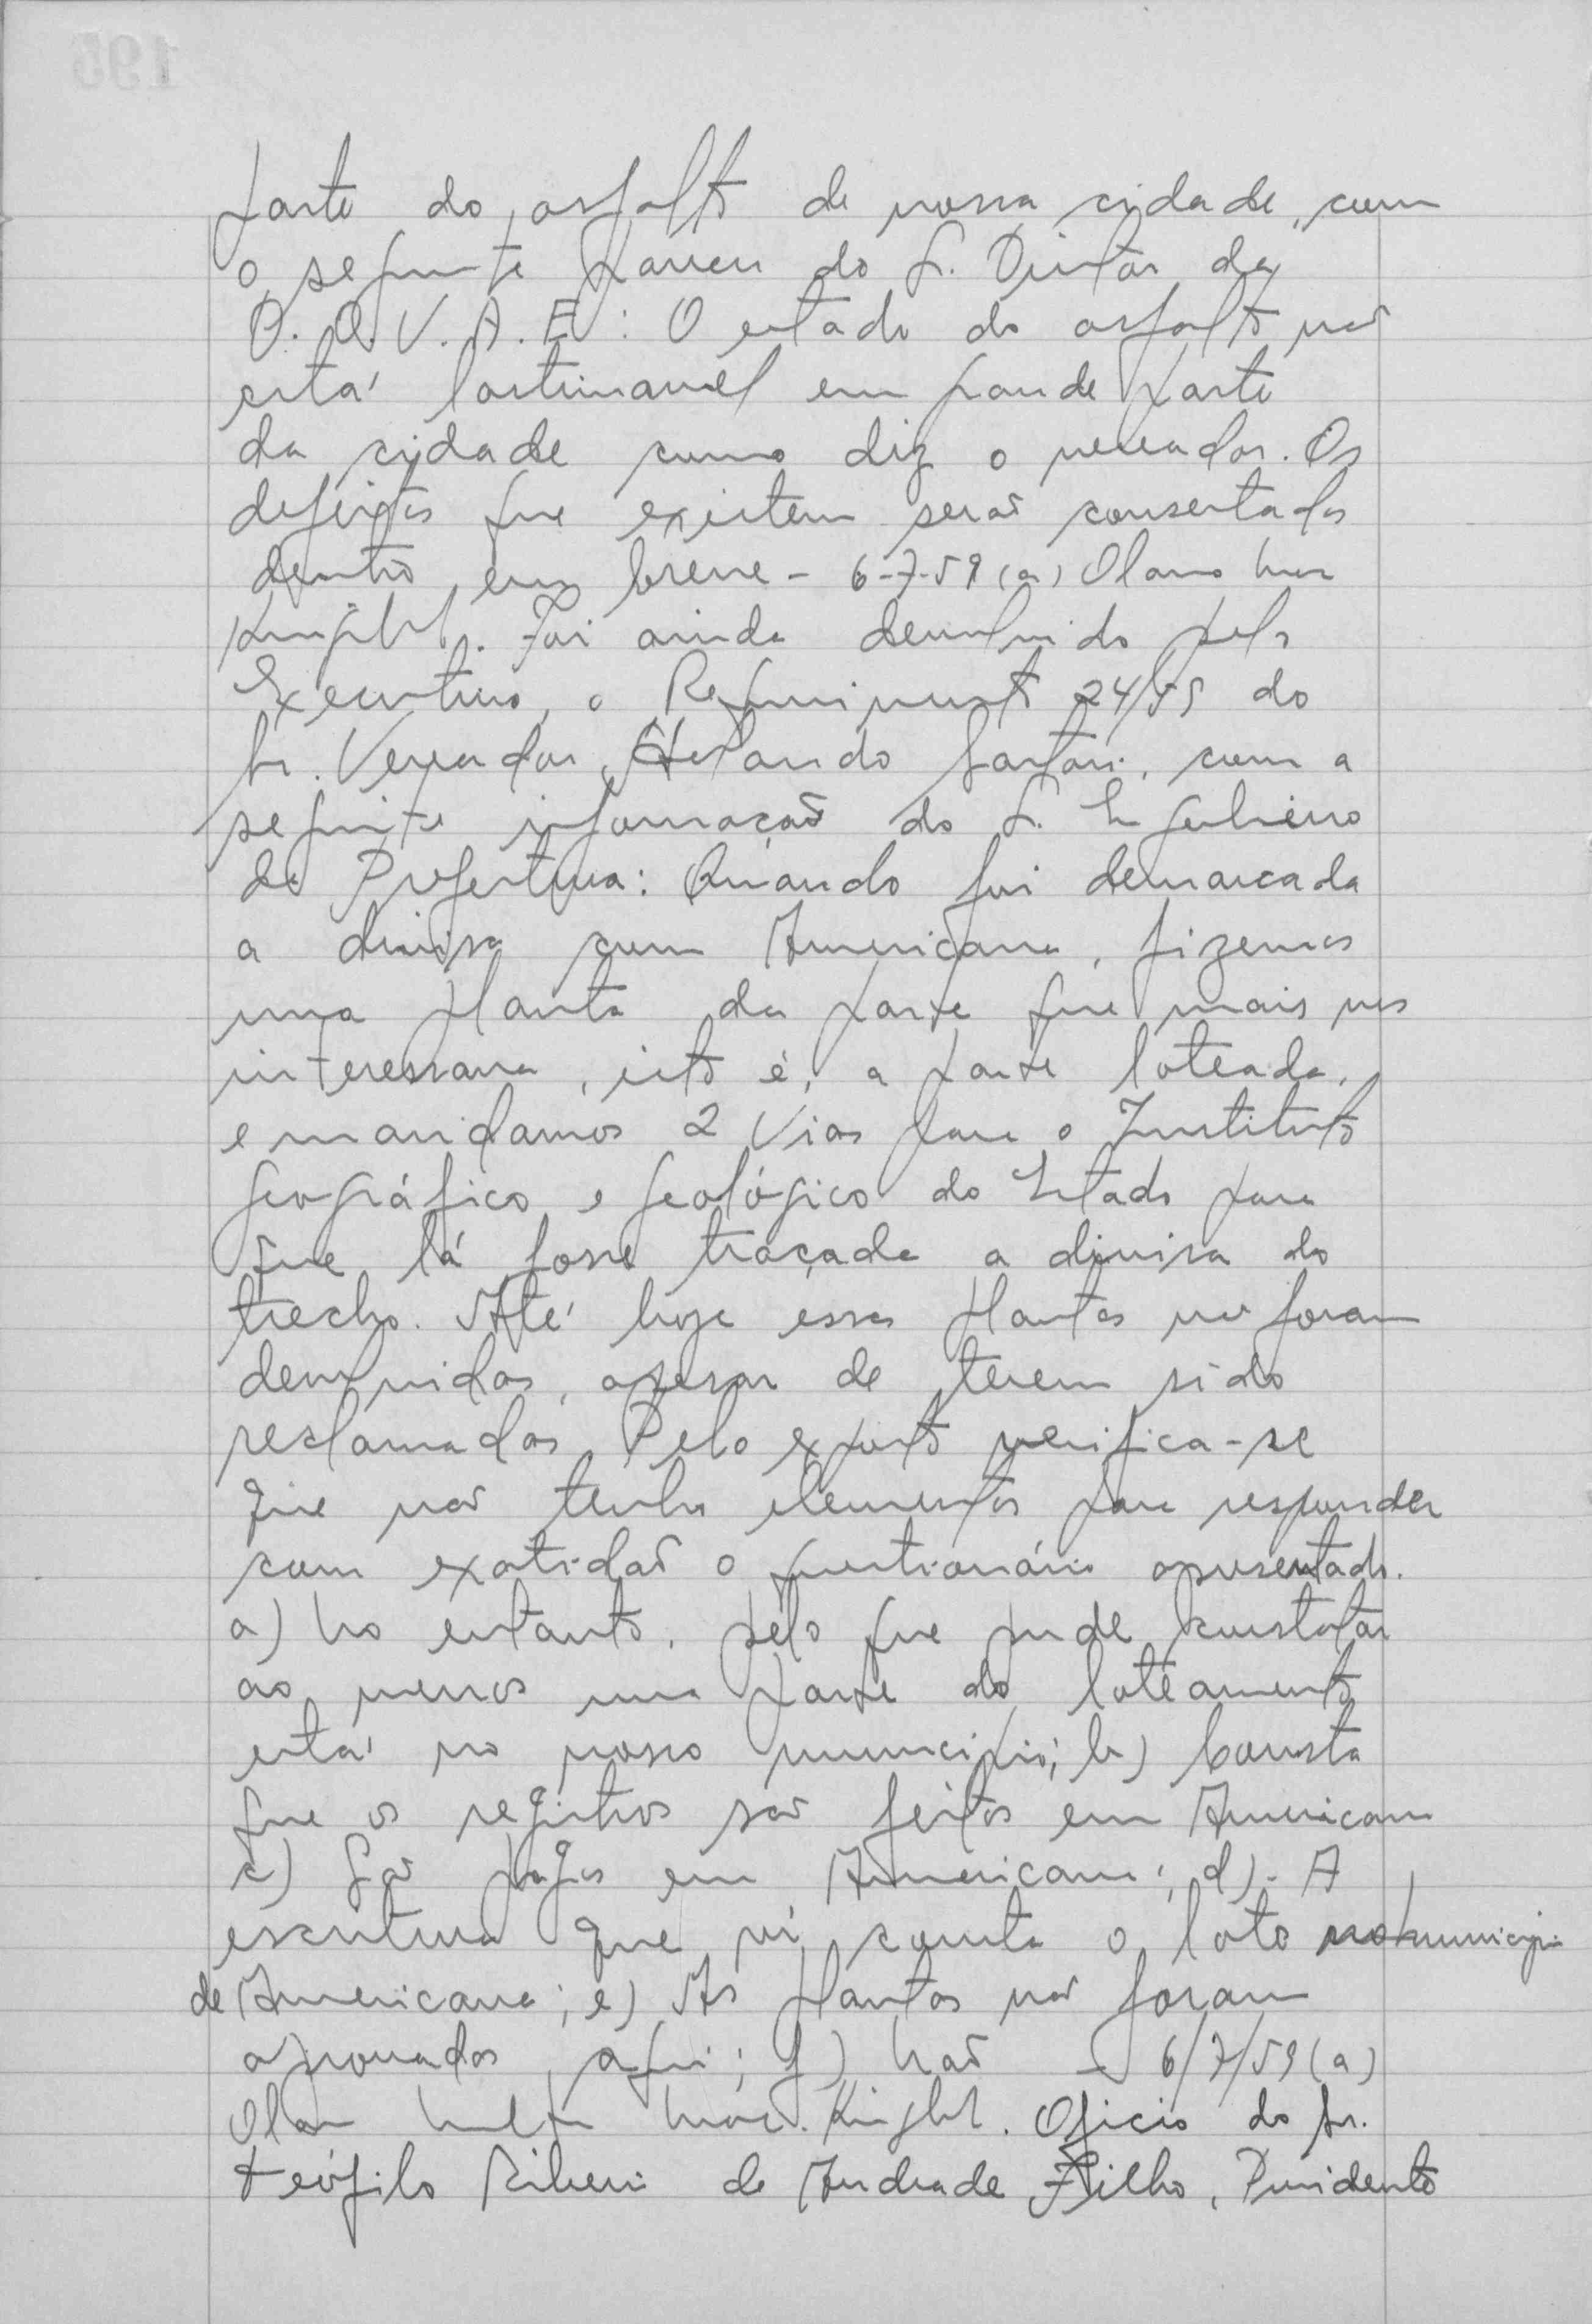 parte do asfalto de nossa cidade, com
o seguinte parecer do Sr. Diretor da
D.O.V.A.E: O estado do asfalto não
está lastimavel em grande parte
da cidade como diz o vereador. Os
defeitos que existem serão consertados
dentro em breve - 6-7-59 (a) Olavo
Knight. Foi ainda devolvido pelo
Executivo, o Requerimento 24/59 do
Sr. Vereador Herlando Sartori, com a
seguinte informação do Sr. Engenheiro
da Prefeitura: Quando foi demarcada
a divisa com Americana, fizemos
uma planta da parte que mais nos
interessava, isto é, a parte loteada,
e mandamos 2 vias para o Instituto
geográfico e geológico do Estado para
que lá fosse traçada a divisa do
trecho. Até hoje essas plantas não foram
devolvidas, apesar de terem sido
reclamadas. Pelo exposto verifica-se
que não tenho elementos para responder
com exatidão o questionário apresentado.
a) No entanto, pelo que pude constatar
ao menos uma parte do loteamento
está no nosso municipio; b) Consta
que os registros são feitos em Americana
c) São pagos em Americana; d) - A
escritura que vi consta o lote no municipio
de Americana; e) As plantas não foram
aprovadas aqui; f) Não - 6/7/59 (a)
Olavo Knight. Oficio do Sr.
Teófilo Ribeiro de Andrade Filho, Presidente